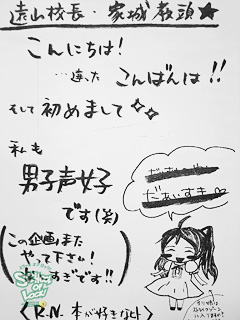 遠山校長・家城教頭★
こんにちは！
…違った こんばんは!!
そして 初めまして
私も
男子声女子
です(笑)
だあいすき♥
この企画、また
やって下さい！
すぎです!!
<R.N.本が好きなヒト>